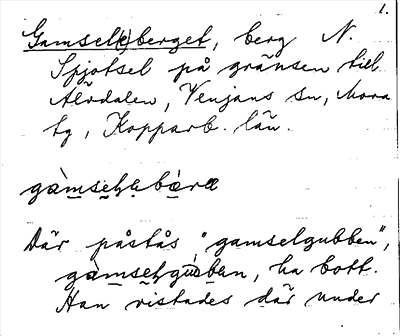 1.
Gamsel(s)berget, berg N.
Spjotsel på gränsen till
Älvdalen, Venjans sn, Mora
tg, Kopparb. län.
Där påstås "gamselgubben",
ha bott.
Han vistades där under